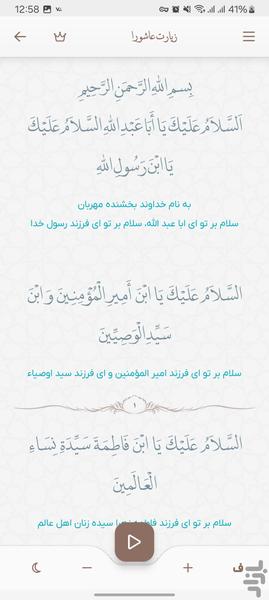 12:58
41%
زیارت عاشورا
بِسمِ اللهِ الرَّحمَنِ الرَّحِیمِ
اَلسَّلَامُ عَلَیْكَ یَا أَبَا عَبْدِ اللهِ السَّلَامُ عَلَیْكَ
یَا ابْنَ رَسُولِ اللهِ
به نام خداوند بخشنده مهربان
سلام بر تو ای ابا عبد الله، سلام بر تو ای فرزند رسول خدا
السَّلَامُ عَلَیْكَ یَا ابْنَ أَمِیرِ الْمُؤْمِنِینَ وَ ابْنَ
سَیِّدِ الْوَصِیِّینَ
سلام بر تو ای فرزند امیر المؤمنین و ای فرزند سید اوصیاء
۱
السَّلَامُ عَلَیْكَ یَا ابْنَ فَاطِمَةَ سَیِّدَةِ نِسَاءِ
الْعَالَمِینَ
سلام بر تو ای فرزند سیده زنان اهل عالم
ف